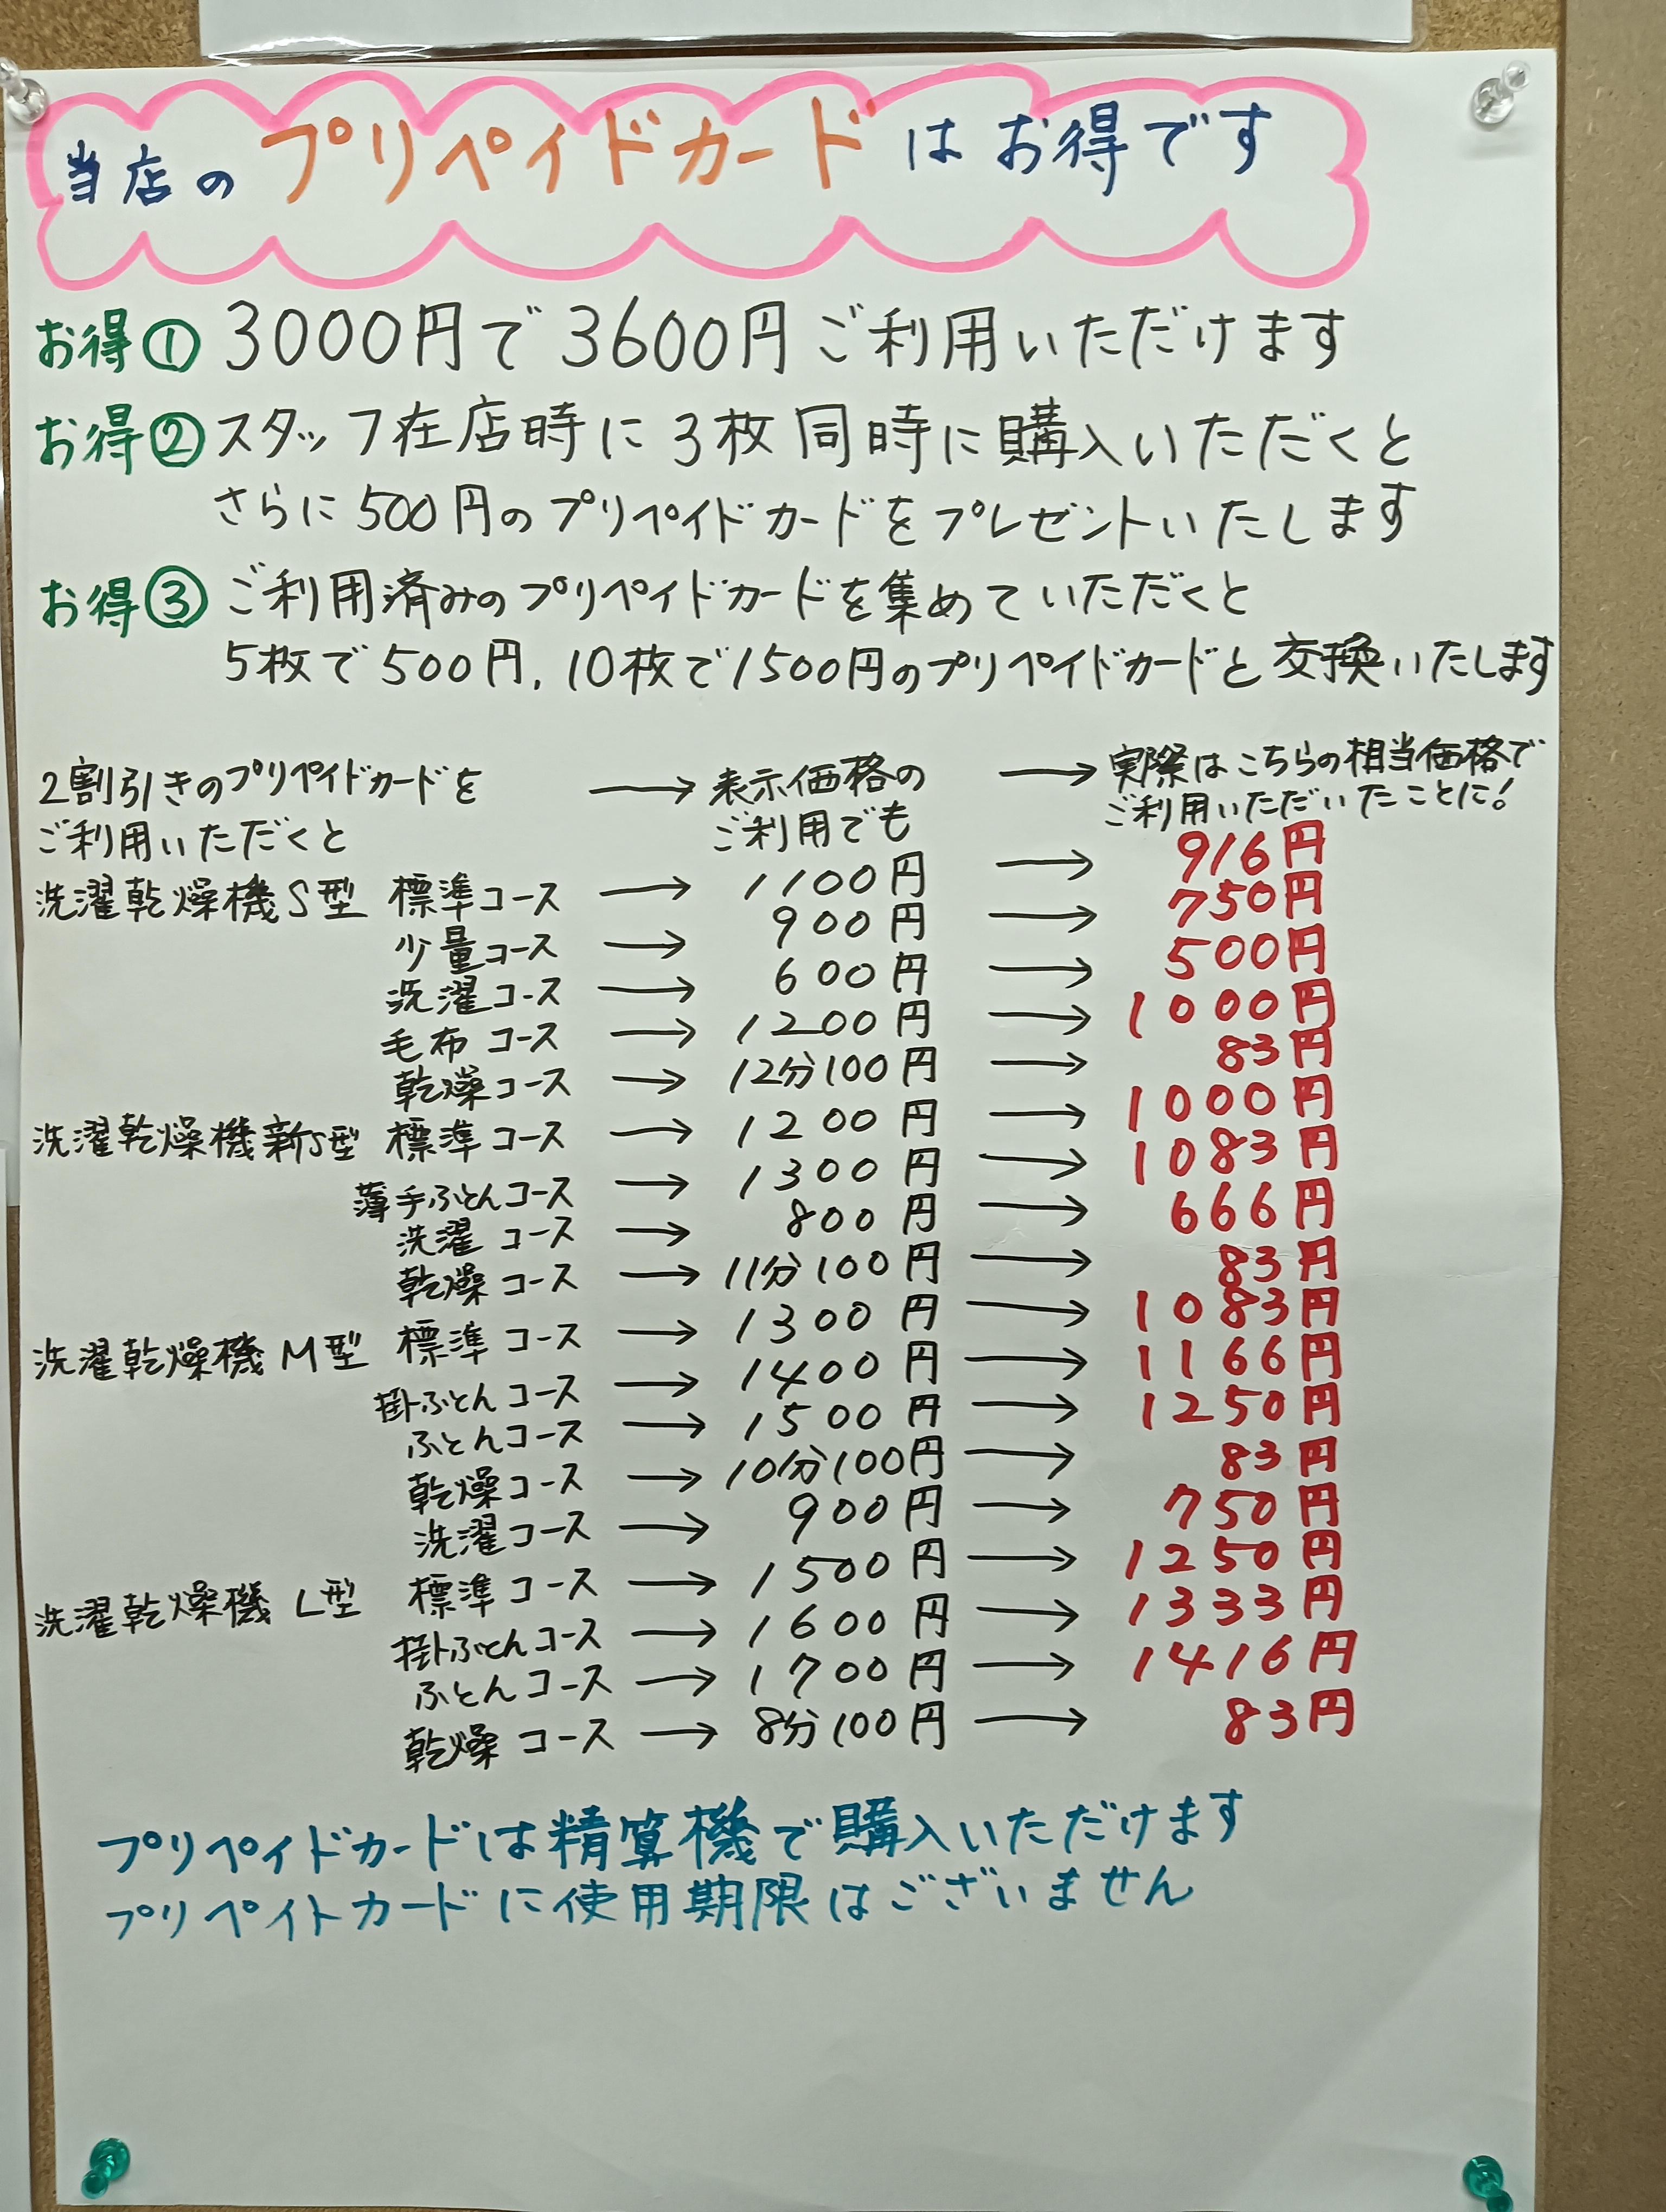 当店のプリペイドカードはお得です
お得① 3000円で3600円ご利用いただけます
お得② スタッフ在店時に3枚同時に購入いただくと
さらに500円のプリペイドカードをプレゼントいたします
お得③ ご利用済みのプリペイドカードを集めていただくと
5枚で500円, 10枚で1500円のプリペイドカードと交換いたします
2割引きのプリペイドカードを → 表示価格の → 実際はこちらの相当価格で
ご利用いただくと ご利用でも ご利用いただいたことに!
洗濯乾燥機S型 標準コース → 1100円 → 916円
少量コース → 900円 → 750円
洗濯コース → 600円 → 500円
毛布コース → 1200円 → 1000円
乾燥コース → 12分100円 → 83円
洗濯乾燥機新S型 標準コース → 1200円 → 1000円
薄手ふとんコース → 1300円 → 1083円
洗濯コース → 800円 → 666円
乾燥コース → 11分100円 → 83円
洗濯乾燥機M型 標準コース → 1300円 → 1083円
掛ふとんコース → 1400円 → 1166円
ふとんコース → 1500円 → 1250円
乾燥コース → 10分100円 → 83円
洗濯コース → 900円 → 750円
洗濯乾燥機L型 標準コース → 1500円 → 1250円
掛ふとんコース → 1600円 → 1333円
ふとんコース → 1700円 → 1416円
乾燥コース → 8分100円 → 83円
プリペイドカードは精算機で購入いただけます
プリペイトカードに使用期限はございません